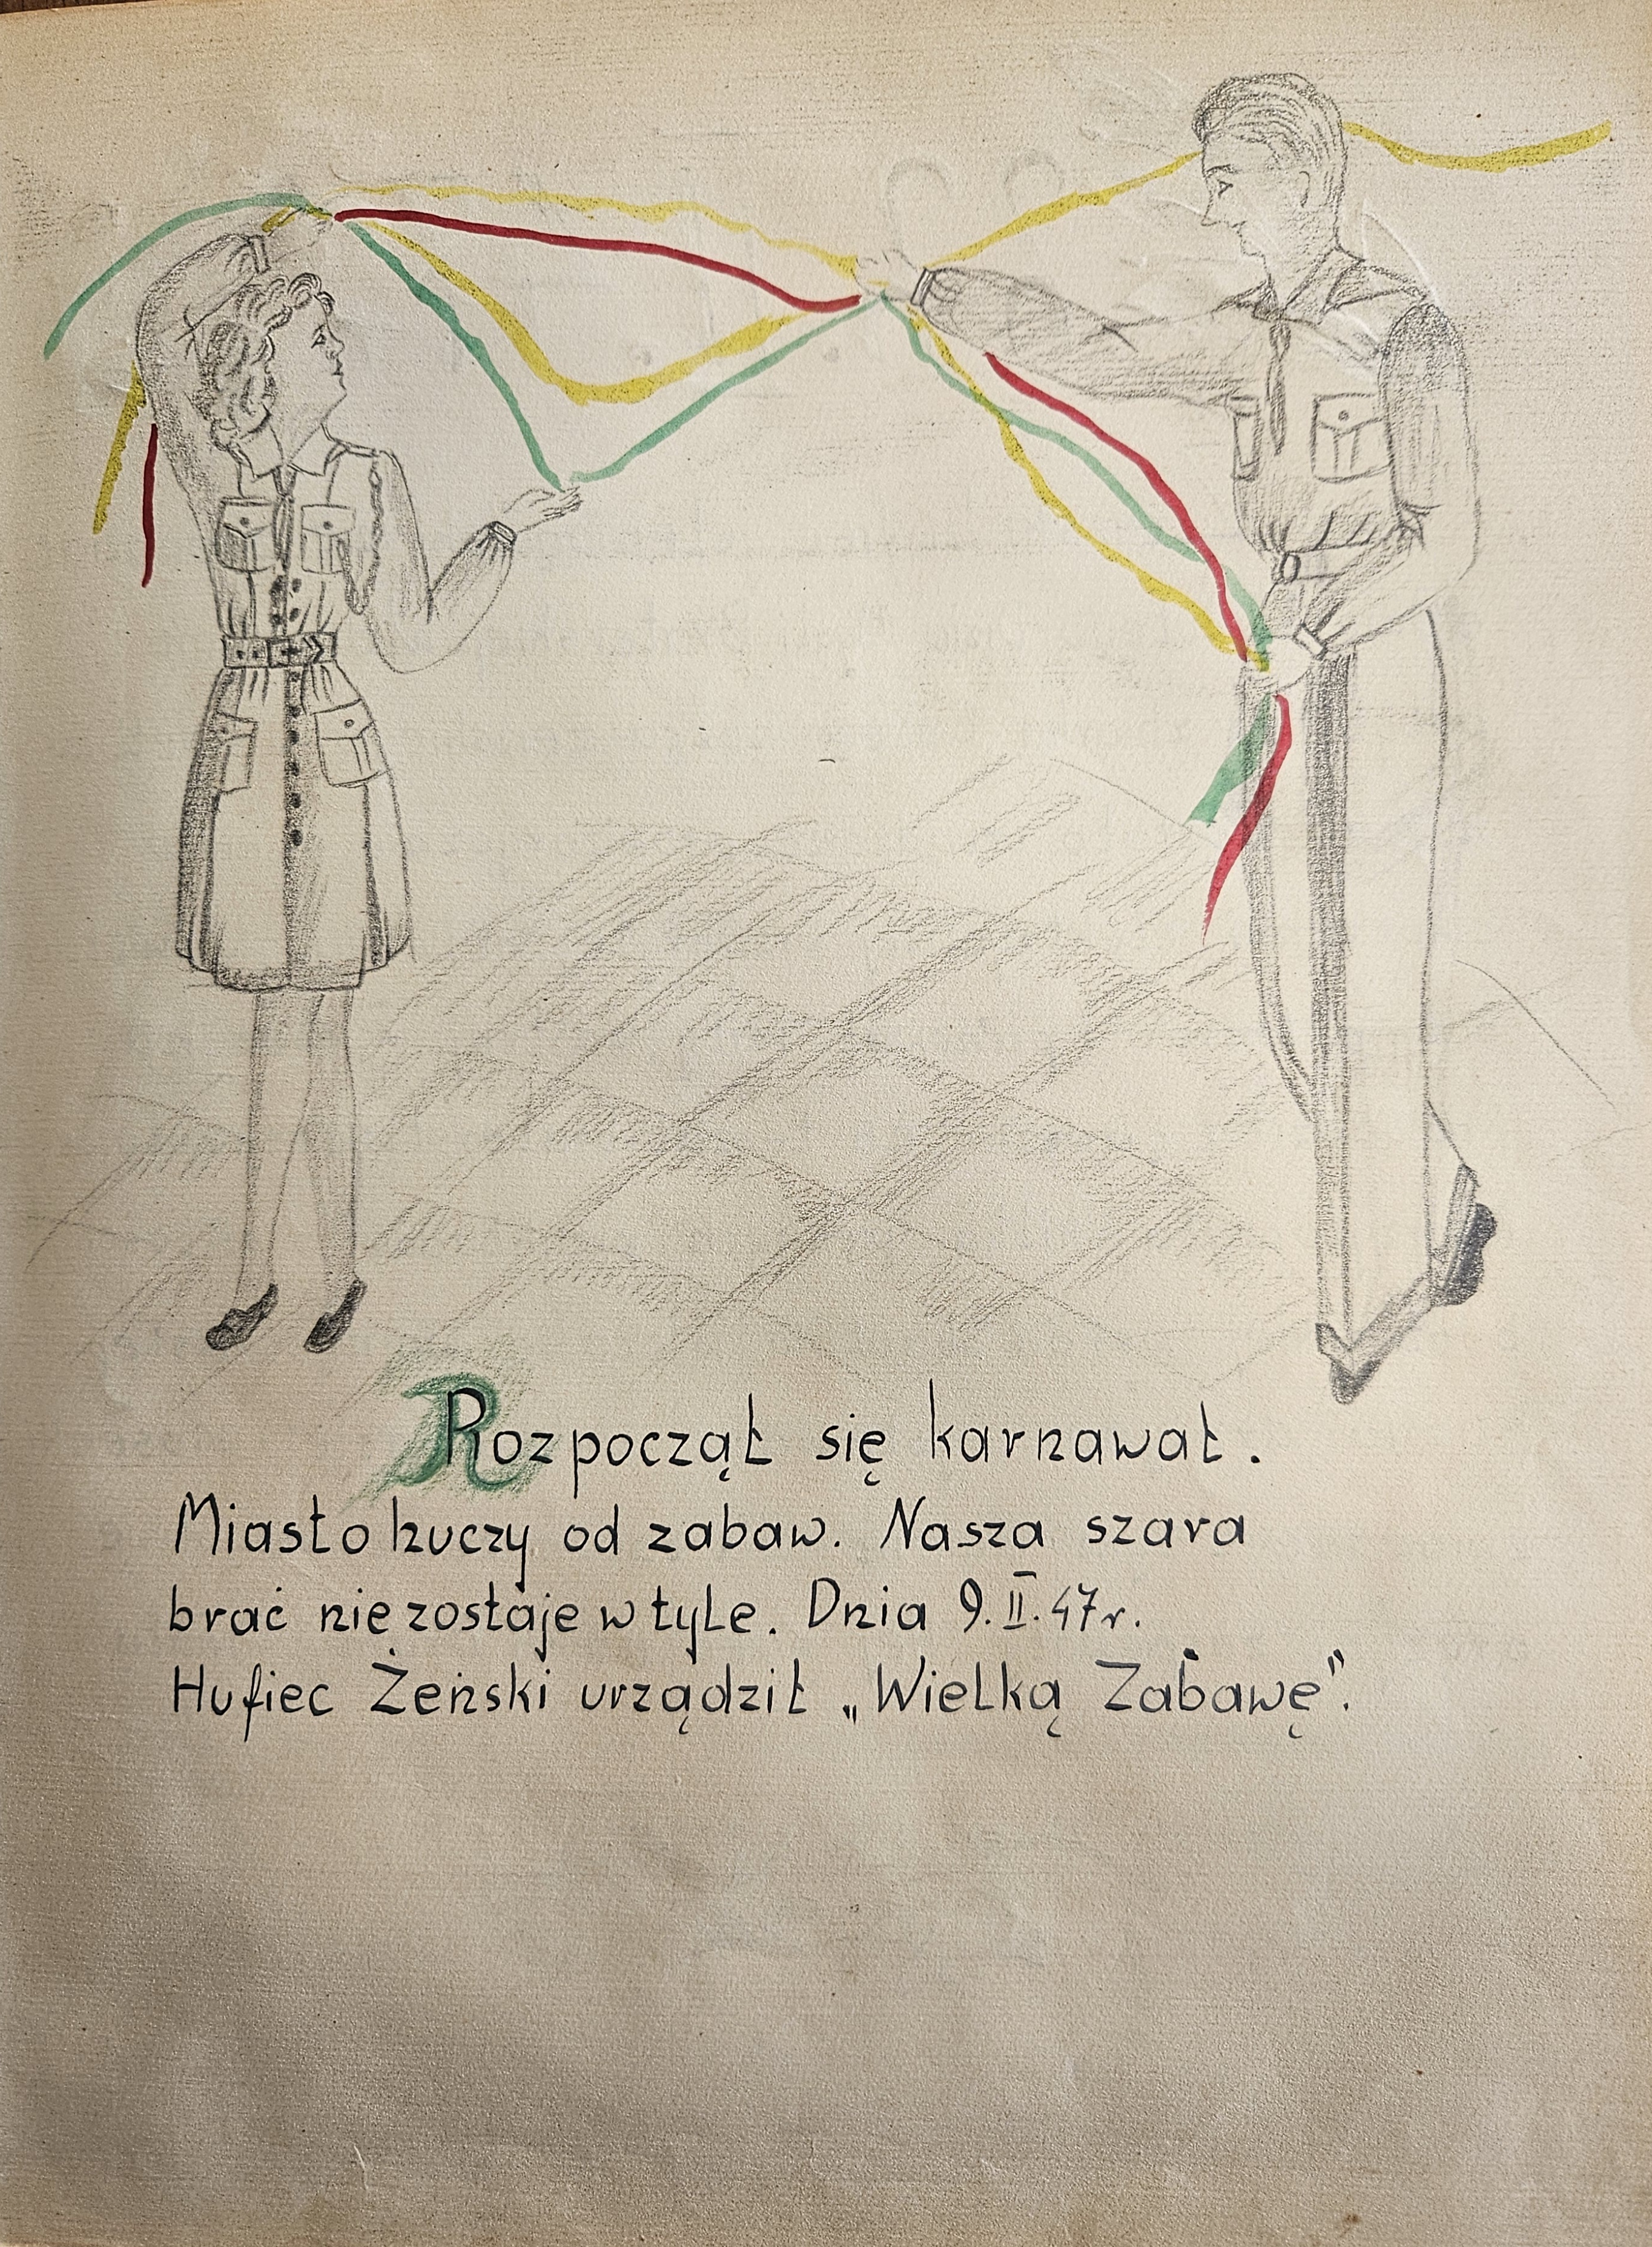 Rozpoczął się karnawał.
Miasto huczy od zabaw. Nasza szara
brać nie zostaje w tyle. Dnia 9.II.47r.
Hufiec Żeński urządził „Wielką Zabawę".